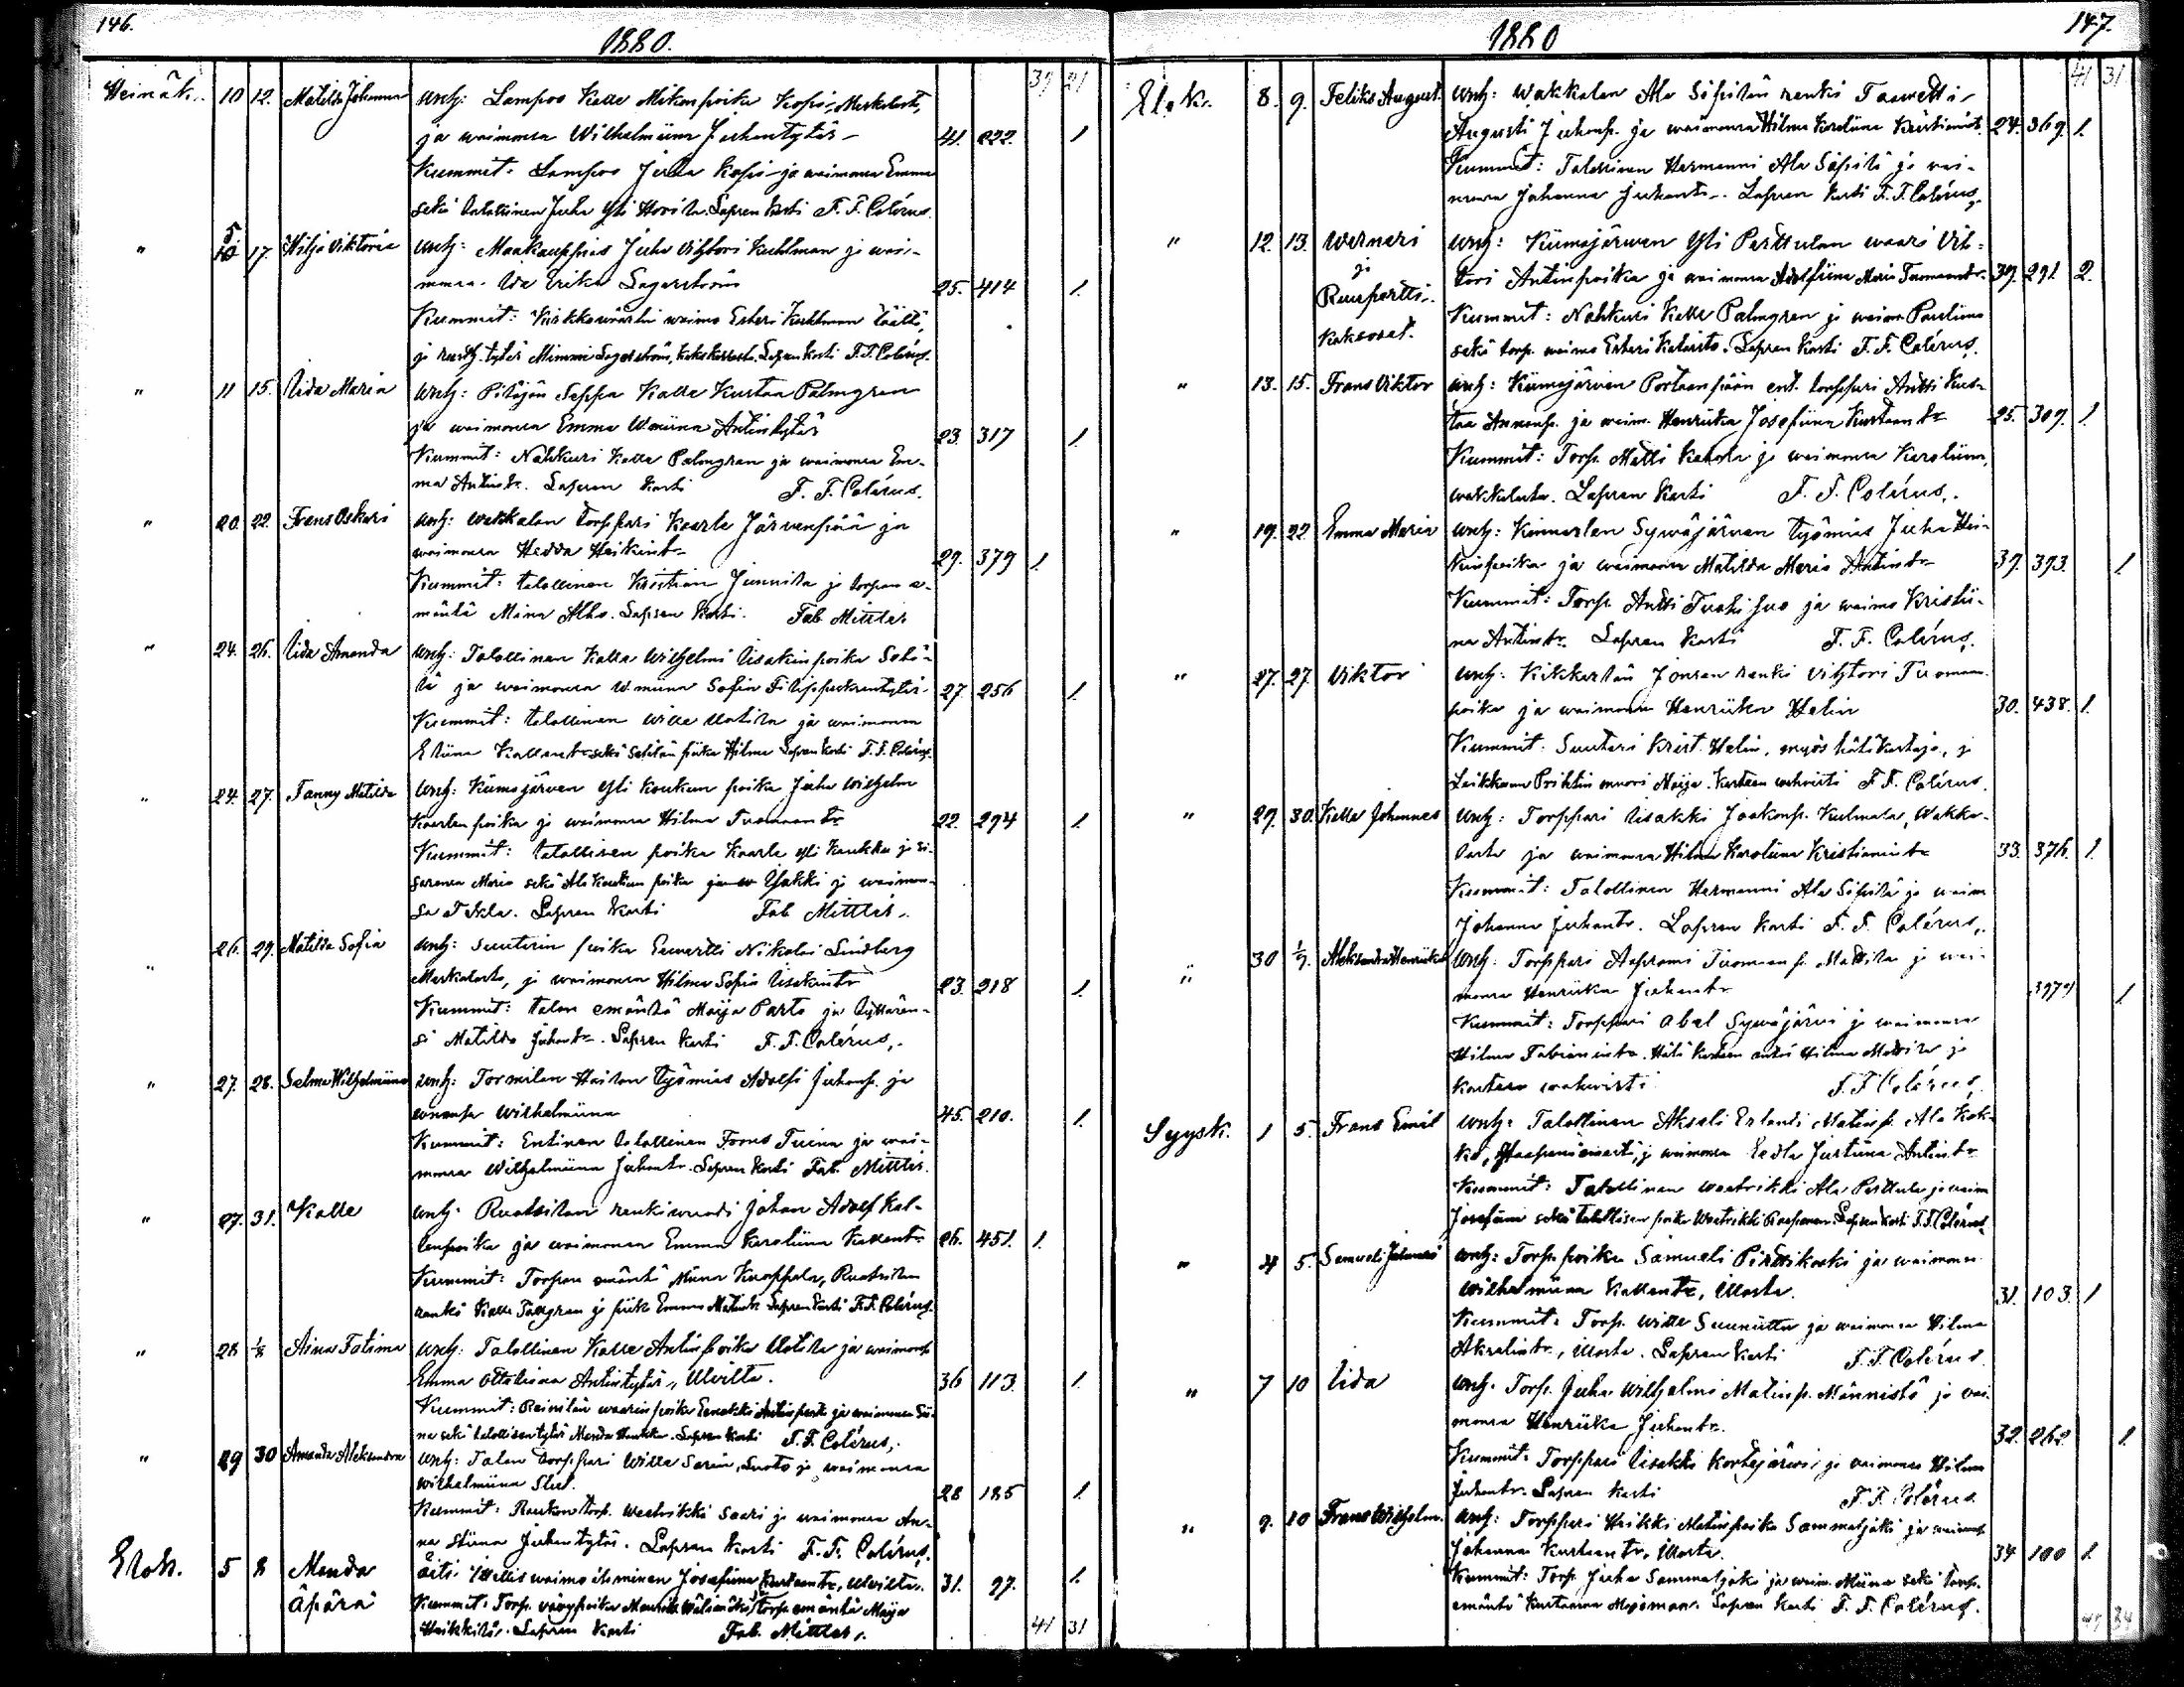 146.
1880.
39 21
Heinäk. 10 12. Matilda Johanna Wnh: Lampos Kalle Mikonpoika Kopsi, Merkalasta,
ja waimonsa Wilhelmiina Juhantytär 41. 222. 1
Kummit: Lampos Juha Kopsi ja waimonsa Emma
sekä talollinen Juha Yli Hoosita. Lapsen kasti F. F. Calérus.
" 5 10 17. Hilja Viktoria Wnh: Maakauppias Juha Vihtori Kuhlman ja wai-
monsa Ida Erika Lagerström 25. 414 1.
Kummit: Kirkkowäärti waimo Esteri Kuhlman täältä,
ja rusth. tytär Mimmi Lagerström, Lapsen kasti F. F. Calérus.
" 11 15. Iida Maria Wnh: Pitäjän Seppä Kalle Kustaa Palmgren
ja waimonsa Emma Wmiina Antintytär 23. 317 1
Kummit: Nahkuri Kalle Palmgren ja waimonsa Em-
ma Antintr. Lapsen kasti F. F. Calérus.
" 20. 22. Frans Oskari Wnh: Wakkalan torppari Kaarle Järvenpää ja
waimonsa Hedda Heikintr 29. 379 1.
Kummit: talollinen Kristian Junnila ja torpan e-
mäntä Miina Alho. Lapsen kasti. Fab Mittler
" 24. 26. Iida Amanda Wnh: Talollinen Kalle Wilhelmi Iisakinpoika Sobi-
lä ja waimonsa Wmiina Sofia Filippuksentytär 27. 256 1.
Kummit: talollinen Wille Uotila ja waimonsa
Eliina Kallentr sekä piika Hilma Lapsen kasti F. F. Calérus.
" 24. 27. Fanny Matilda Wnh: Kiimajärven Yli Koukun poika Juha Wilhelm
Kaarlenpoika ja waimonsa Hilma Tuomaantr 22. 294 1.
Kummit: talollisen poika Kaarle Yli Koukku ja si-
sarensa Maria sekä Ala Koukun poika Jaakki ja waimon-
sa Tekla. Lapsen kasti Fab Mittler.
" 26. 29. Matilda Sofia Wnh: Suutarin poika Eewertti Nikolai Lindberg
Merkalasta, ja waimonsa Hilma Sofia Iisakintr 23. 218 1.
Kummit: talon emäntä Maija Parto ja tyttären-
sä Matilda Juhantr. Lapsen kasti F. F. Calérus.
" 27. 28. Selma Wilhelmiina Wnh: Tormilan Haiton työmies Adolfi Juhanp. ja
waimonsa Wilhelmiina 45. 210. 1.
Kummit: Entinen talollinen Frans Tuima ja wai-
monsa Wilhelmiina Juhantr. Lapsen kasti Fab. Mittler.
" 27. 31. Kalle Wnh: Ruotsilan renkiwuodi Johan Adolf Kal-
lenpoika ja waimonsa Emma Karoliina Kallentr 26. 451. 1.
Kummit: Torpan emäntä Miina Knaappala, Ruotsilan
renki Kalle Tallgren ja piika Emma Matintr Lapsen kasti F. F. Calérus.
" 28 1/8 Aina Fatima Wnh: Talollinen Kalle Antinpoika Uotila ja waimonsa
Emma Ottiliana Antintytär, Ulvilta. 36 113. 1.
Kummit: Rainilan waarin poika Eenokki Antinpoika ja waimonsa Sii-
na sekä talollisen tytär Manda Haukka. Lapsen kasti F. F. Calérus.
" 29 30 Amanda Aleksandra Wnh: Talon torppari Wille Sarin, Luoto ja waimonsa
Wilhelmiina Slud. 28 185 1.
Kummit: Raukon torp. Weetrikki Saari ja waimonsa An-
na Stiina Juhantytär. Lapsen kasti F. F. Calérus.
Elok. 5 8 Manda äiti: Itsellis waimo Josefiina Kustaantr, Ulvilta. 31. 97. 1.
äpärä Kummit: Torp. Mauritz Wälimäki, torp emäntä Maija
Heikkilä. Lapsen kasti Fab. Mittler.
41 31
147.
1880
41 31
Elok. 8. 9. Feliks August Wnh: Wakkalan Ala Sipilän renki Taavetti
Augusti Juhanp. ja waimonsa Hilma Karoliina Kristianintr. 24. 369. 1.
Kummit: Talollinen Hermanni Ala Sipilä ja wai-
monsa Johanna Juhantr. Lapsen kasti F. F. Calérus.
" 12. 13. Werneri Wnh: Kiimajärven Yli Perttulan waari Vih-
ja tori Antinpoika ja waimonsa Adolfiina Maria Tuomaantr. 39. 291. 2.
Ruupertti Kummit: Nahkuri Kalle Palmgren ja waim Pauliina
Kaksoset. sekä torp. waimo Esteri Kalasto. Lapsen kasti F. F. Calérus.
" 13. 15. Frans Viktor Wnh: Kiimajärven Portaanpään ent. torppari Antti Kus-
taa Antinp. ja waim. Henriika Josefiina Kustaantr 25. 309. 1.
Kummit: Torp. Matti Ketola ja waimonsa Karoliina,
wakkalasta. Lapsen kasti F. F. Calérus.
" 19. 22 Emma Maria Wnh: Kinnarlan Sywäjärven työmies Juha Hei-
kinpoika ja waimonsa Matilda Maria Antintr 39. 393. 1.
Kummit: Torp. Antti Tuohisuo ja waimo Kristii-
na Antintr. Lapsen kasti F. F. Calérus.
" 27. 27. Viktor Wnh: Kikkerlän Jonsan renki Vihtori Tuomaan-
poika ja waimonsa Henriika Helin 30. 438. 1.
Kummit: Suutari Krist. Helin, myös hätäkastaja, ja
Leikkaan Prihtin muori Maija. Kasteen wahvisti F. F. Calérus.
" 29. 30. Kalle Johannes Wnh: Torppari Iisakki Jaakonp. Kulmala, Wakka-
lasta ja waimonsa Hilma Karoliina Kristianintr 33. 376. 1.
Kummit: Talollinen Hermanni Ala Sipilä ja waim
Johanna Juhantr. Lapsen kasti F. F. Calérus.
" 30 1/9. Aleksandra Henriika Wnh: Torppari Aaprami Tuomaanp. Mattila ja wai-
monsa Henriika Juhantr 397 1
Kummit: Torppari Abel Sywäjärvi ja waimonsa
Hilma Fabianintr. Hätä kasteen antoi Hilma Mattila ja
kasteen waahwisti F. F. Calérus.
Syysk. 1 5. Frans Emil Wnh: Talollinen Akseli Erlandi Matinp. Ala Kok-
ko, ja waimonsa Eedla Justiina Antintr
Kummit: Talollinen Weetrikki Ala Perttula ja waim
Josefiina sekä talollisen poika Weetrikki Raipanen. Lapsen kasti F. F. Calérus.
" 4 5. Samueli Johannes Wnh: Torp. poika Samueli Pirttikoski ja waimonsa
Wilhelmiina Kallentr, Illosta. 31. 103. 1
Kummit: Torp. Wille Suuniittu ja waimonsa Hilma
Akselintr., Illosta. Lapsen kasti F. F. Calérus.
" 7 10 Iida Wnh: Torp. Juha Wilhelmi Matinp. Männistö ja wai-
monsa Henriika Juhantr. 32. 262. 1.
Kummit: Torppari Iisakki Kortejärwi ja waimonsa Hilma
Juhantr. Lapsen kasti F. F. Calérus.
" 9. 10 Frans Wilhelm. Wnh: Torppari Heikki Matinpoika Sammaljoki ja waimonsa
Johanna Kustaantr, Illosta. 34 100 1.
Kummit: Torp. Juha Sammaljoki ja waim. Miina sekä torp.
emäntä Kustaawa Mojsman. Lapsen kasti F. F. Calérus.
47 34